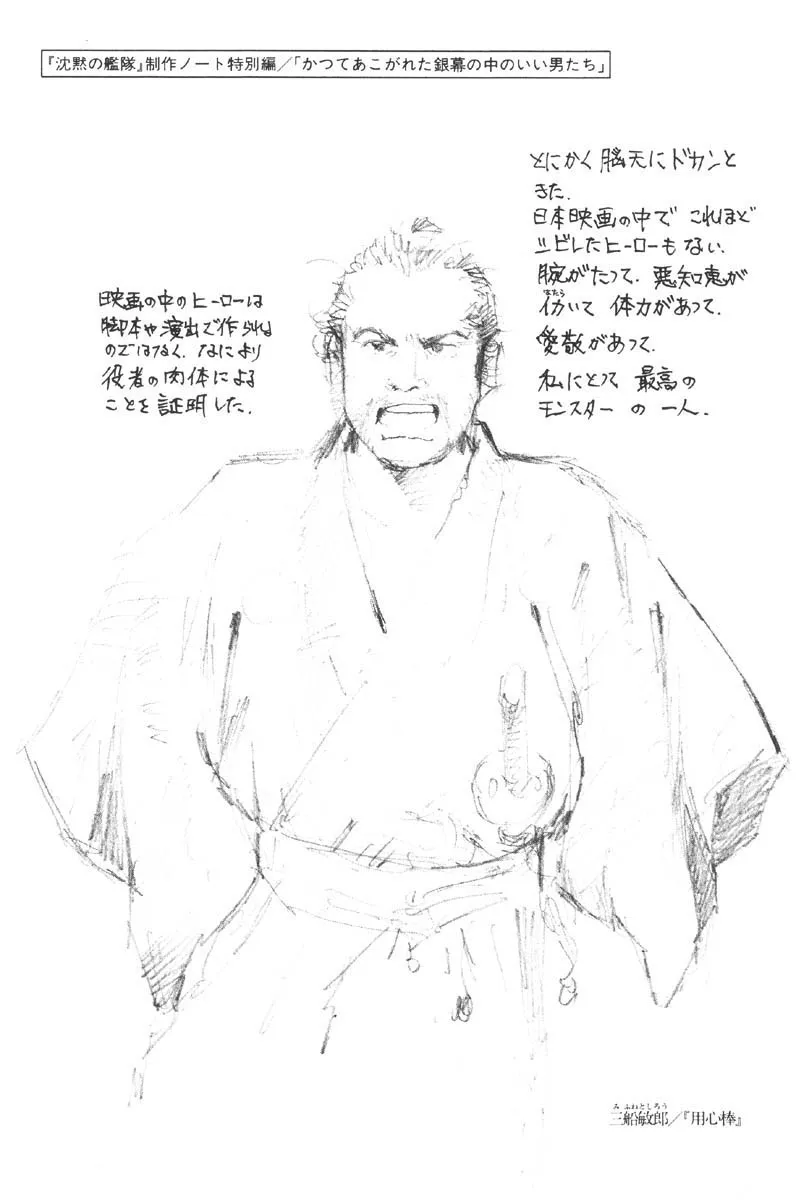 『沈黙の艦隊』制作ノート特別編／「かつてあこがれた銀幕の中のいい男たち」
とにかく脳天にドカンと
きた.
日本映画の中で これほど
シビレたヒーローもない.
腕がたって. 悪知恵が
はたら
働いて 体力があって.
愛敬があって.
私にとって 最高の
モンスター の 一人.
映画の中のヒーローは
脚本や演出で作られる
のではなく. なにより
役者の肉体による
ことを証明した.
みふねとしろう
三船敏郎／『用心棒』